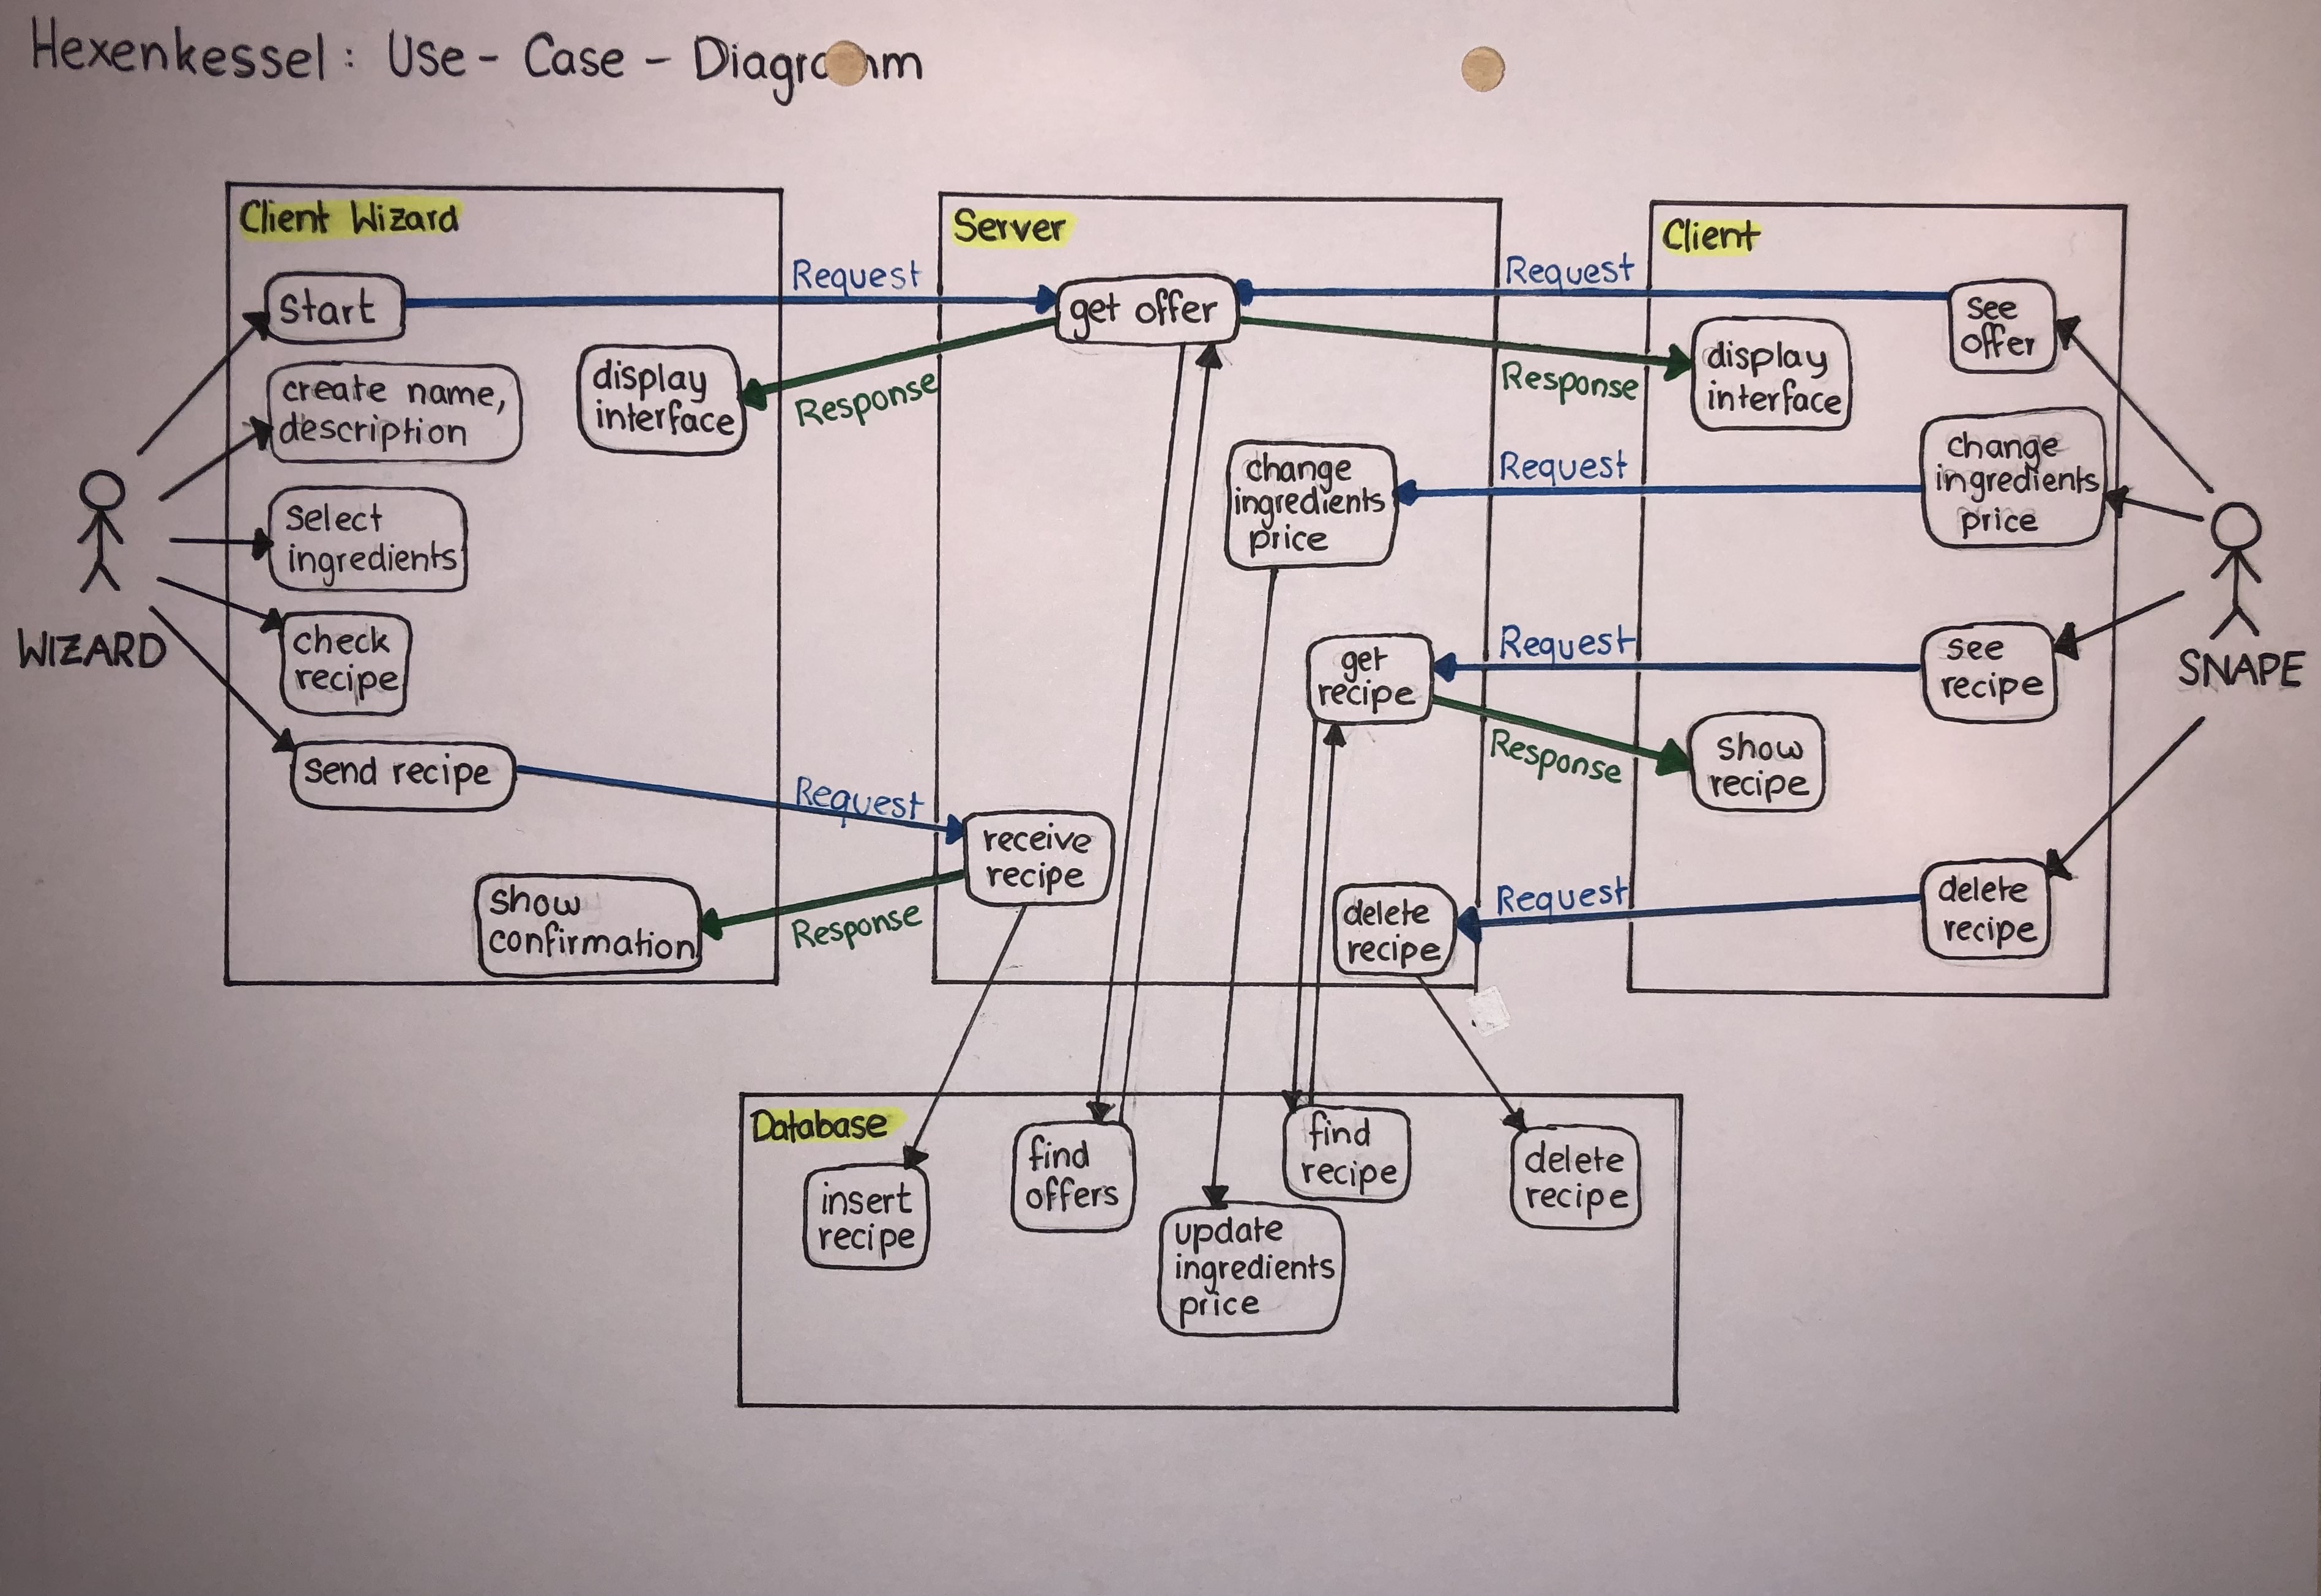 Hexenkessel: Use - Case - Diagramm
Client Wizard
Start
create name,
description
Select
ingredients
check
recipe
send recipe
display
interface
show
confirmation
WIZARD
Request
Response
Request
Response
Server
get offer
change
ingredients
price
get
recipe
receive
recipe
delete
recipe
Request
Response
Request
Request
Response
Request
Client
see
offer
display
interface
change
ingredients
price
see
recipe
show
recipe
delete
recipe
SNAPE
Database
insert
recipe
find
offers
update
ingredients
price
find
recipe
delete
recipe